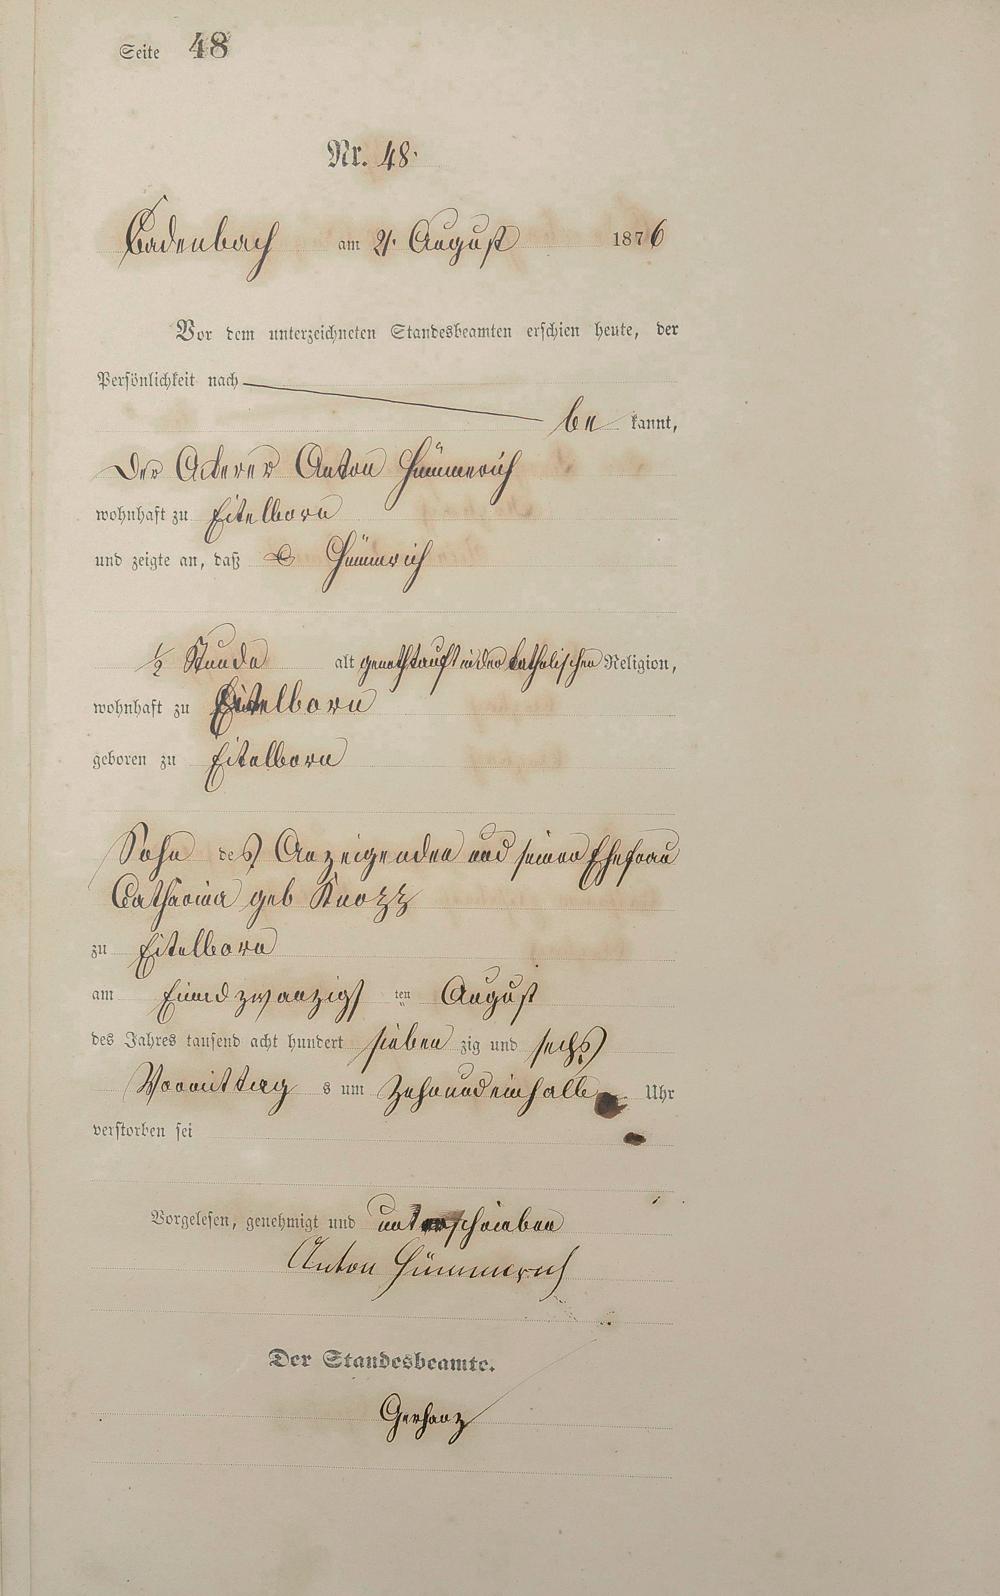 Seite 48
Nr. 48.
Cadenbach am 21. August 1876
Vor dem unterzeichneten Standesbeamten erschien heute, der
Persönlichkeit nach
be kannt,
der Ackerer Anton Hümmerich
wohnhaft zu Eitelborn
und zeigte an, daß Hümmrich
½ Stunde alt genothtauft in der katholischen Religion,
wohnhaft zu Eitelborn
geboren zu Eitelborn
Sohn des Anzeigenden und seiner Ehefrau
Catharina geb
zu Eitelborn
am Einundzwanzigs ten August
des Jahres tausend acht hundert sieben zig und sechs
Vormittag s um Zehnundeinhalb Uhr
verstorben sei
Vorgelesen, genehmigt und unterschrieben
Anton Hümmerich
Der Standesbeamte.
Gerharz